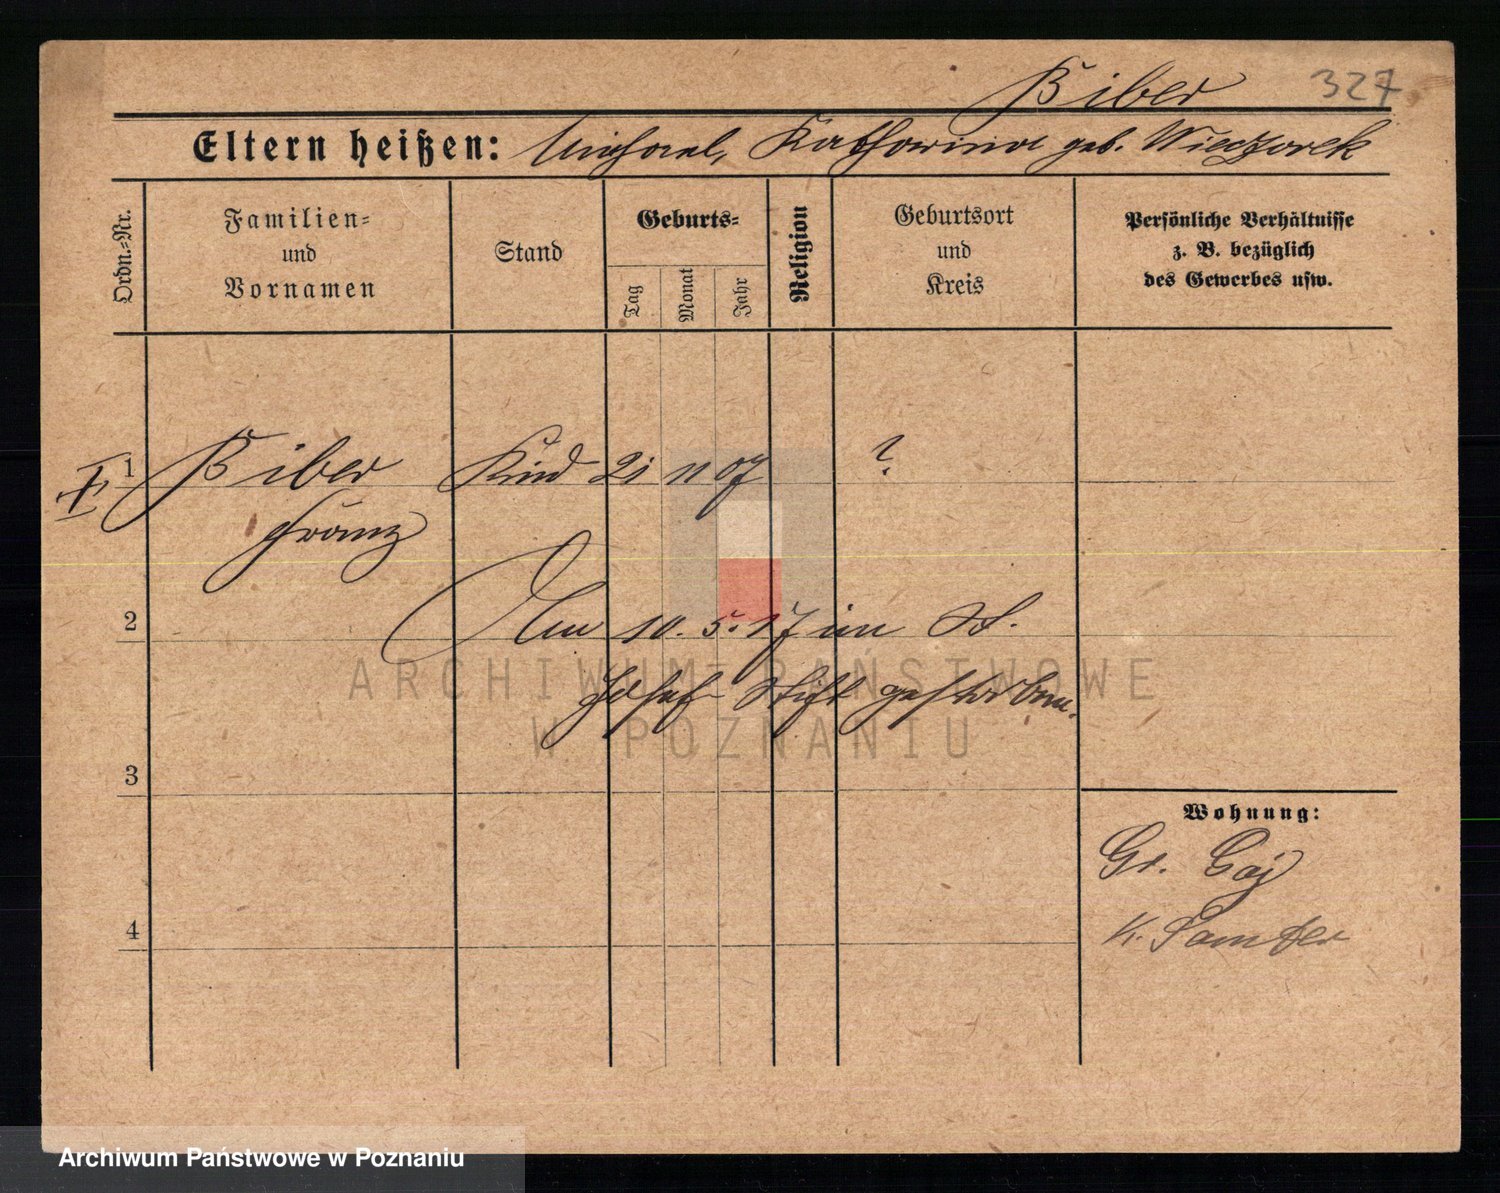 Biber 327
Eltern heißen: Michael, Katharina geb. Wieczorek
Ordn.=Nr.
Familien=
und
Vornamen
Stand
Geburts=
Tag
Monat
Jahr
Religion
Geburtsort
und
Kreis
Persönliche Verhältnisse
z. B. bezüglich
des Gewerbes usw.
1 Biber Kind 21 11 07 ?
Franz
2 Am 10. 5. 17 im St.
Josef Stift gestorben.
ARCHIWUM PAŃSTWOWE
W POZNANIU
3
Wohnung:
Gr. Gaj
4
K. Samter
Archiwum Państwowe w Poznaniu